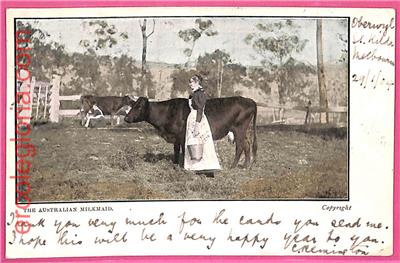 Oberwyl
St. Kilda
Melbourne
THE AUSTRALIAN MILKMAID.
Copyright
Thank you very much for the cards you send me.
I hope this will be a very happy year to you.
@oldegloria.com